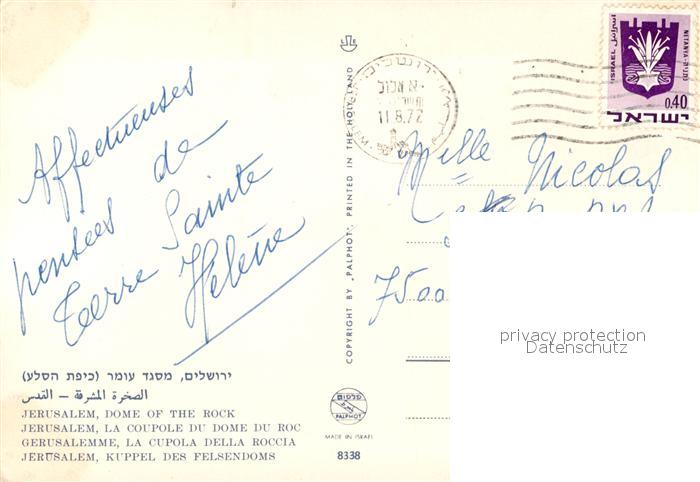 Affectueuses
pensées de
Terre Sainte
Hélène
ירושלים, מסגד עומר (כיפת הסלע)
الصخرة المشرفة — القدس
JERUSALEM, DOME OF THE ROCK
JERUSALEM, LA COUPOLE DU DOME DU ROC
GERUSALEMME, LA CUPOLA DELLA ROCCIA
JERUSALEM, KUPPEL DES FELSENDOMS
COPYRIGHT BY "PALPHOT" PRINTED IN THE HOLY-LAND
פלפוט
PALPHOT
MADE IN ISRAEL
8338
א אלול
11.8.72
ISRAEL اسرائيل
NETANYA נתניה
0.40
ישראל
Melle Nicolas
7500
privacy protection
Datenschutz